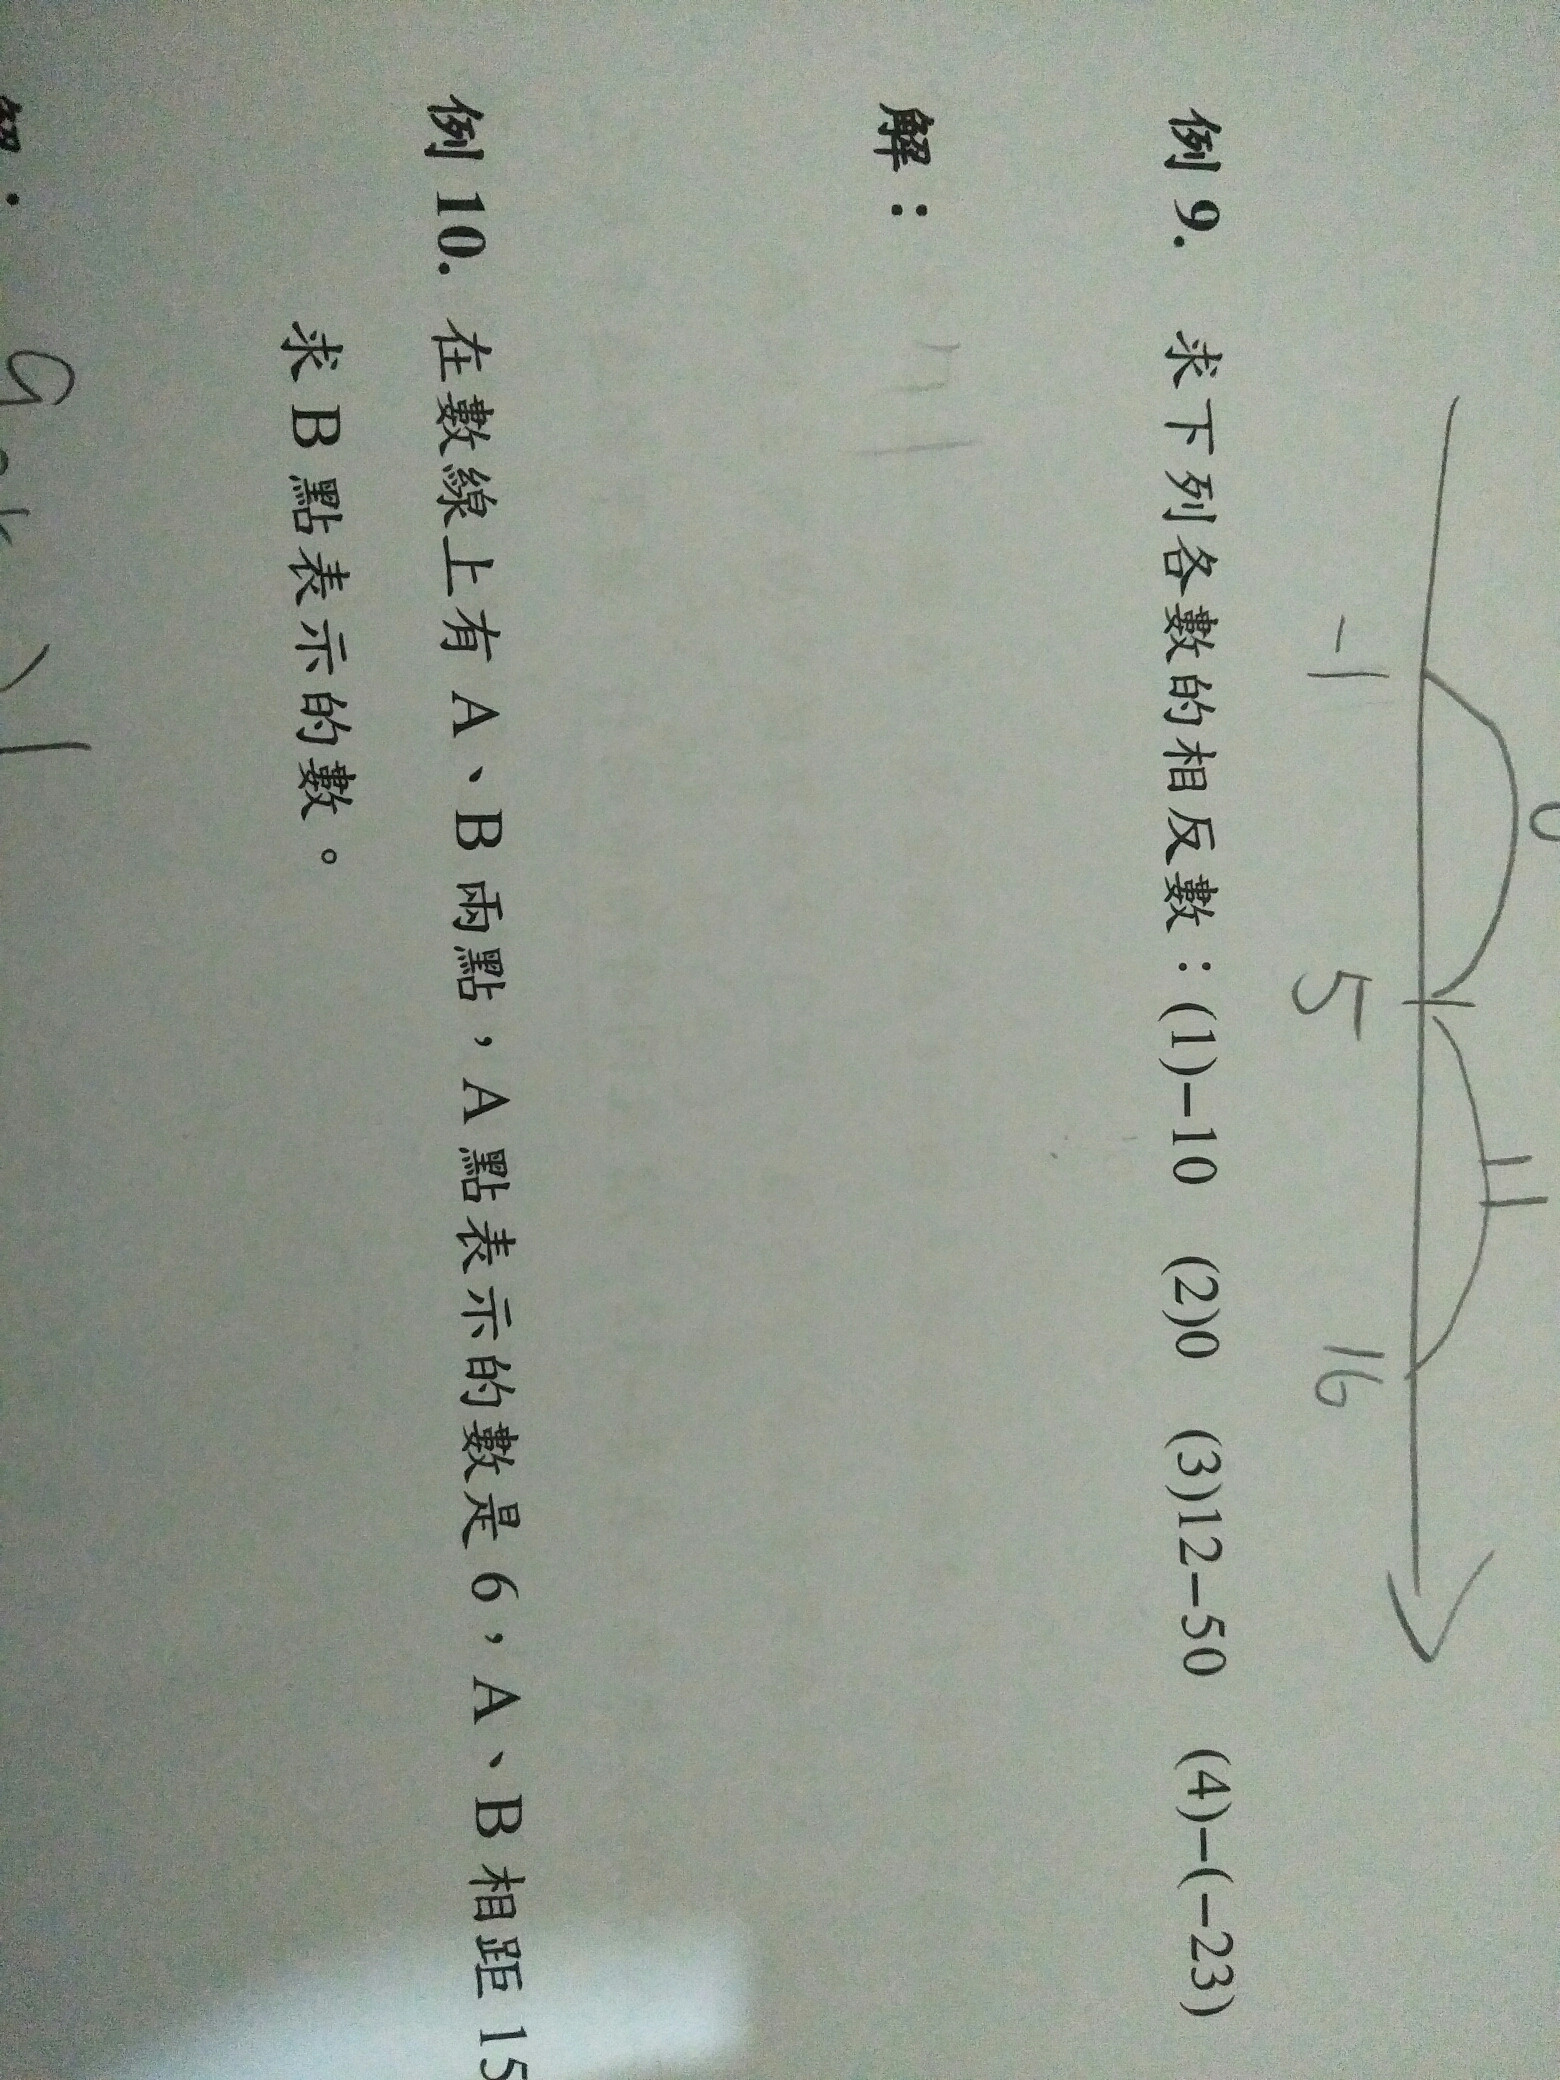 11
-1 5 16
例 9. 求下列各數的相反數：(1)–10 (2)0 (3)12–50 (4)–(–23)
解：
例 10. 在數線上有 A、B 兩點，A 點表示的數是 6，A、B 相距 15
求 B 點表示的數。